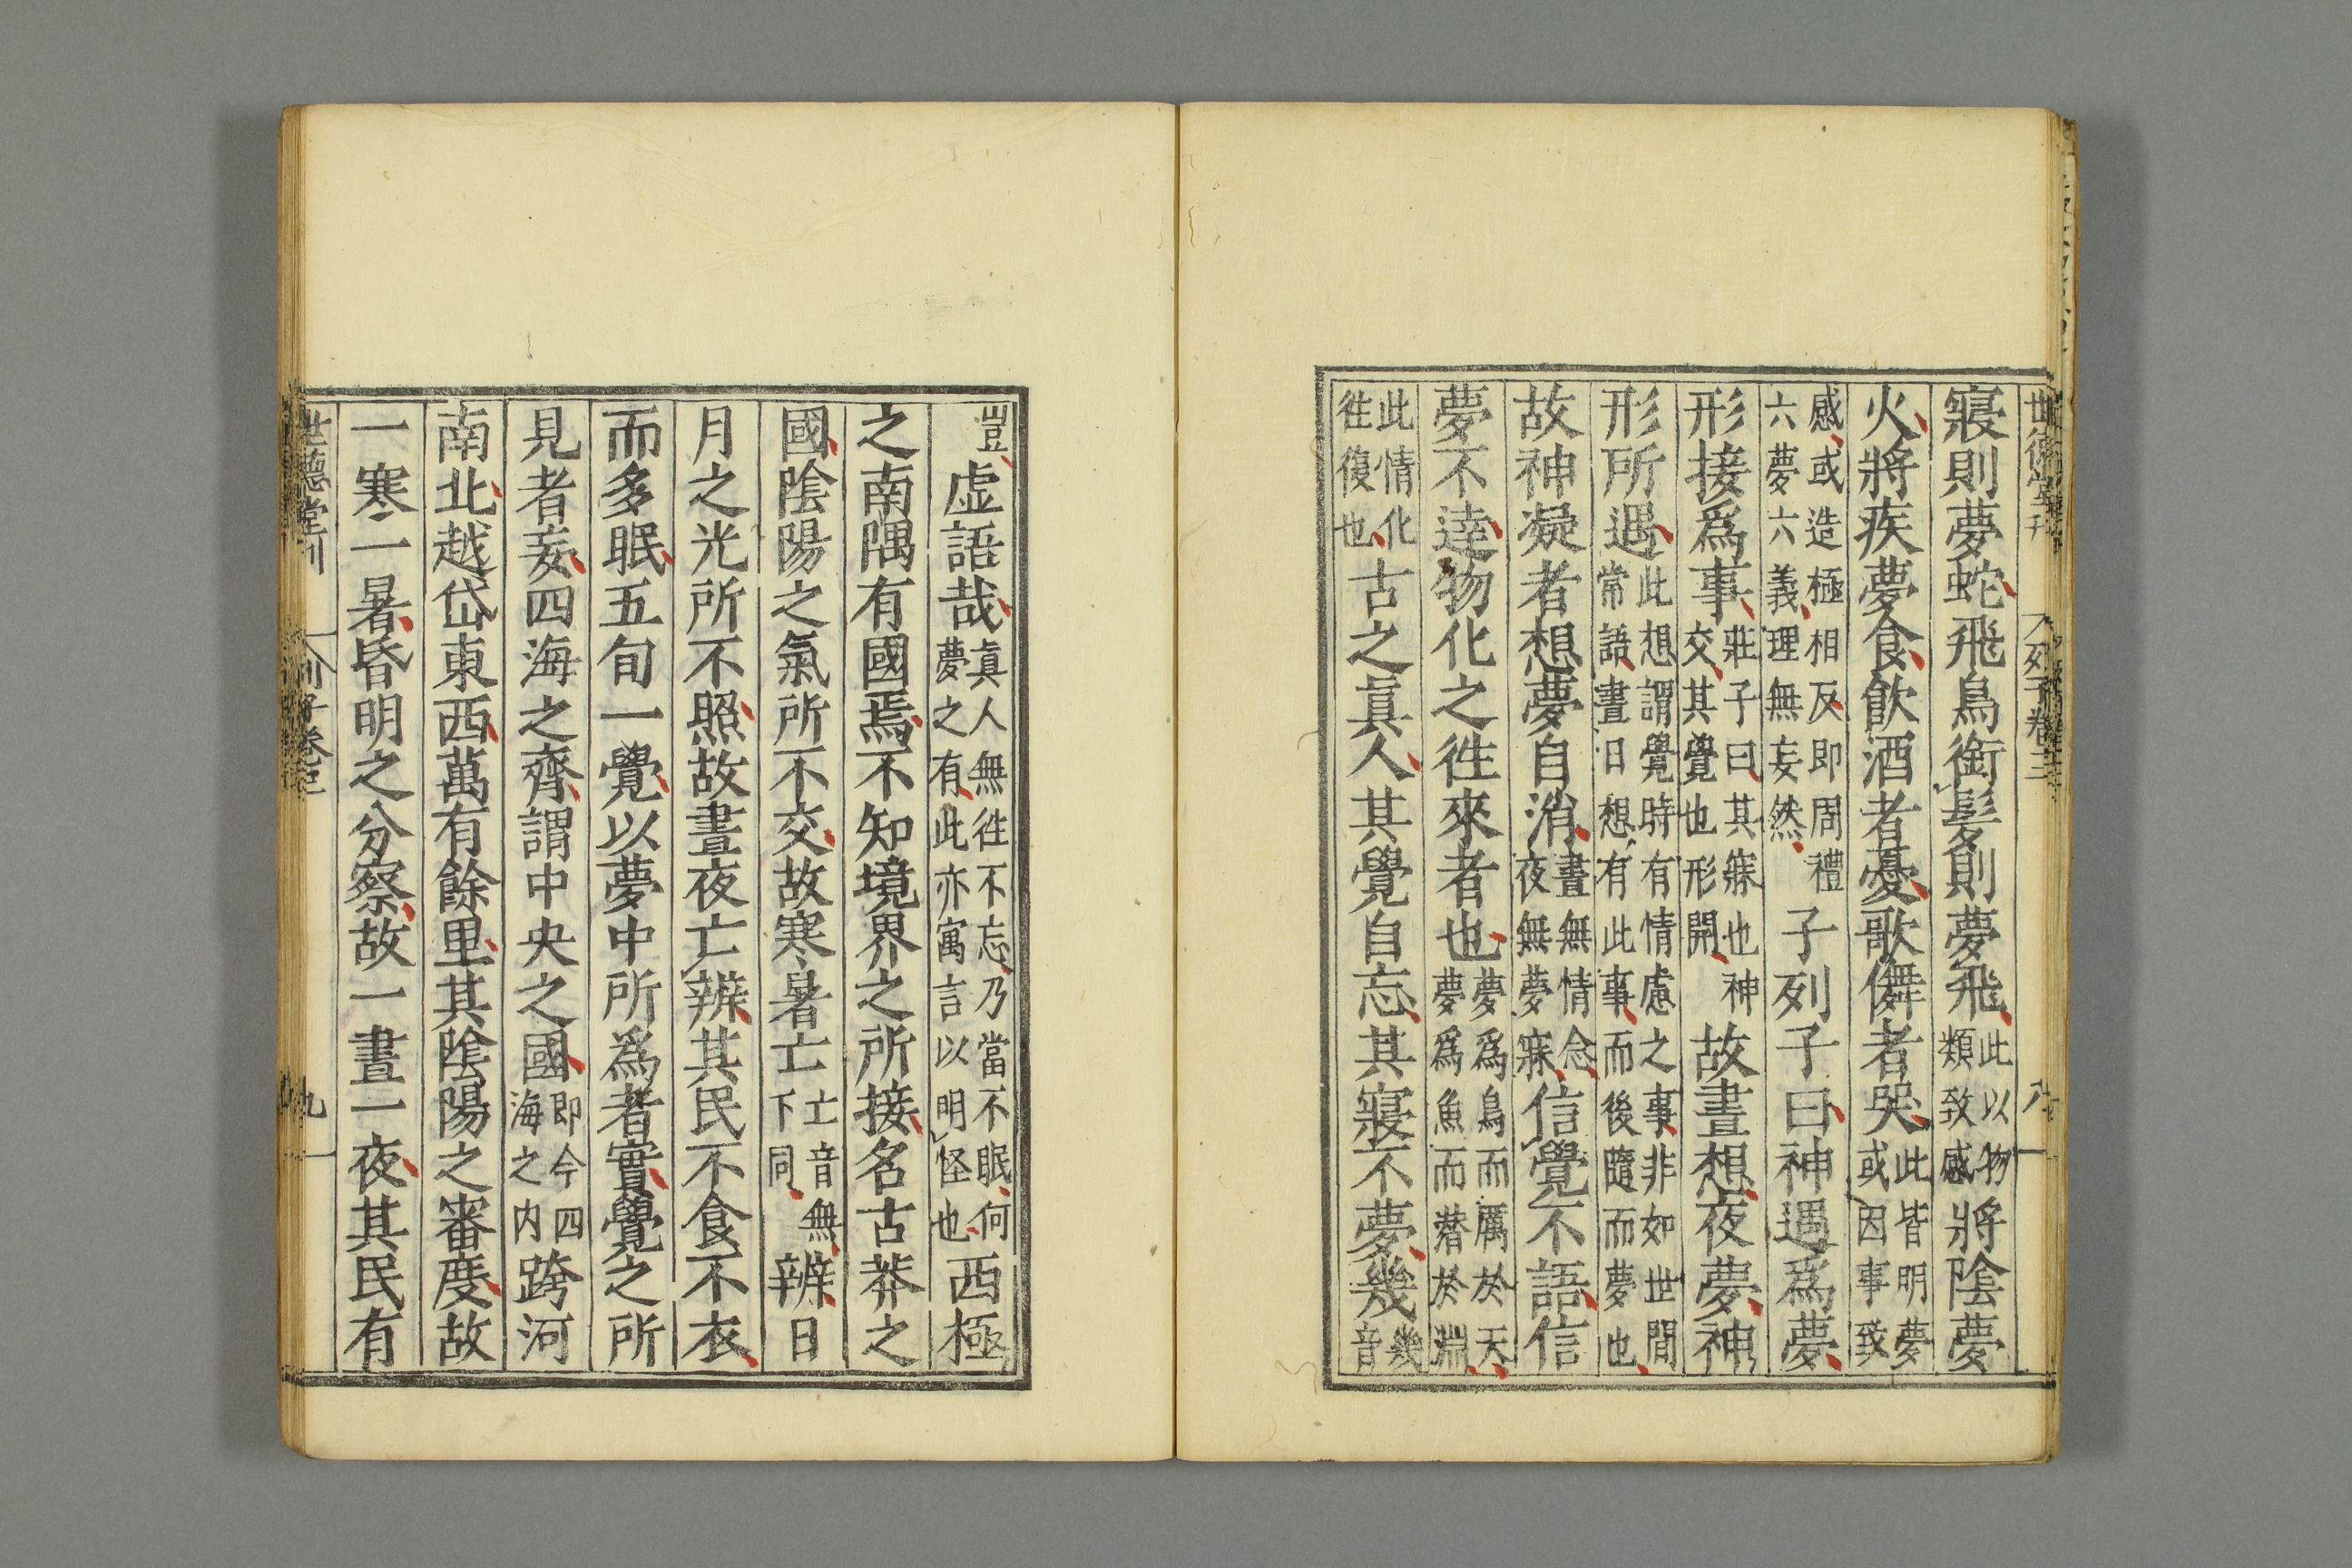 世德堂刊 列子卷三 八
寢則夢蛇飛鳥銜髮則夢飛此以物類致感將陰夢
火將疾夢食飮酒者憂歌儛者哭此皆明夢或因事致
感或造極相反即周禮六夢六義理無妄然子列子曰神遇爲夢
形接爲事莊子曰其寐也神交其覺也形開故晝想夜夢神
形所遇此想謂覺時有情慮之事非如世間常語晝日想有此事而後隨而夢也
故神凝者想夢自消晝無情念夜無夢寐信覺不語信
夢不達物化之徃來者也夢爲鳥而厲於天夢爲魚而潜於淵
此情化徃復也古之眞人其覺自忘其寢不夢幾幾音
豈虛語哉眞人無徃不忘乃當不眠何夢之有此亦寓言以明怪也西極
之南隅有國焉不知境界之所接名古莽之
國陰陽之氣所不交故寒暑亡亡音無下同辨日
月之光所不照故晝夜亡辨其民不食不衣
而多眠五旬一覺以夢中所爲者實覺之所
見者妄四海之齊謂中央之國即今四海之内跨河
南北越岱東西萬有餘里其陰陽之審度故
一寒一暑昏明之分察故一晝一夜其民有
世德堂刊 列子卷三 九